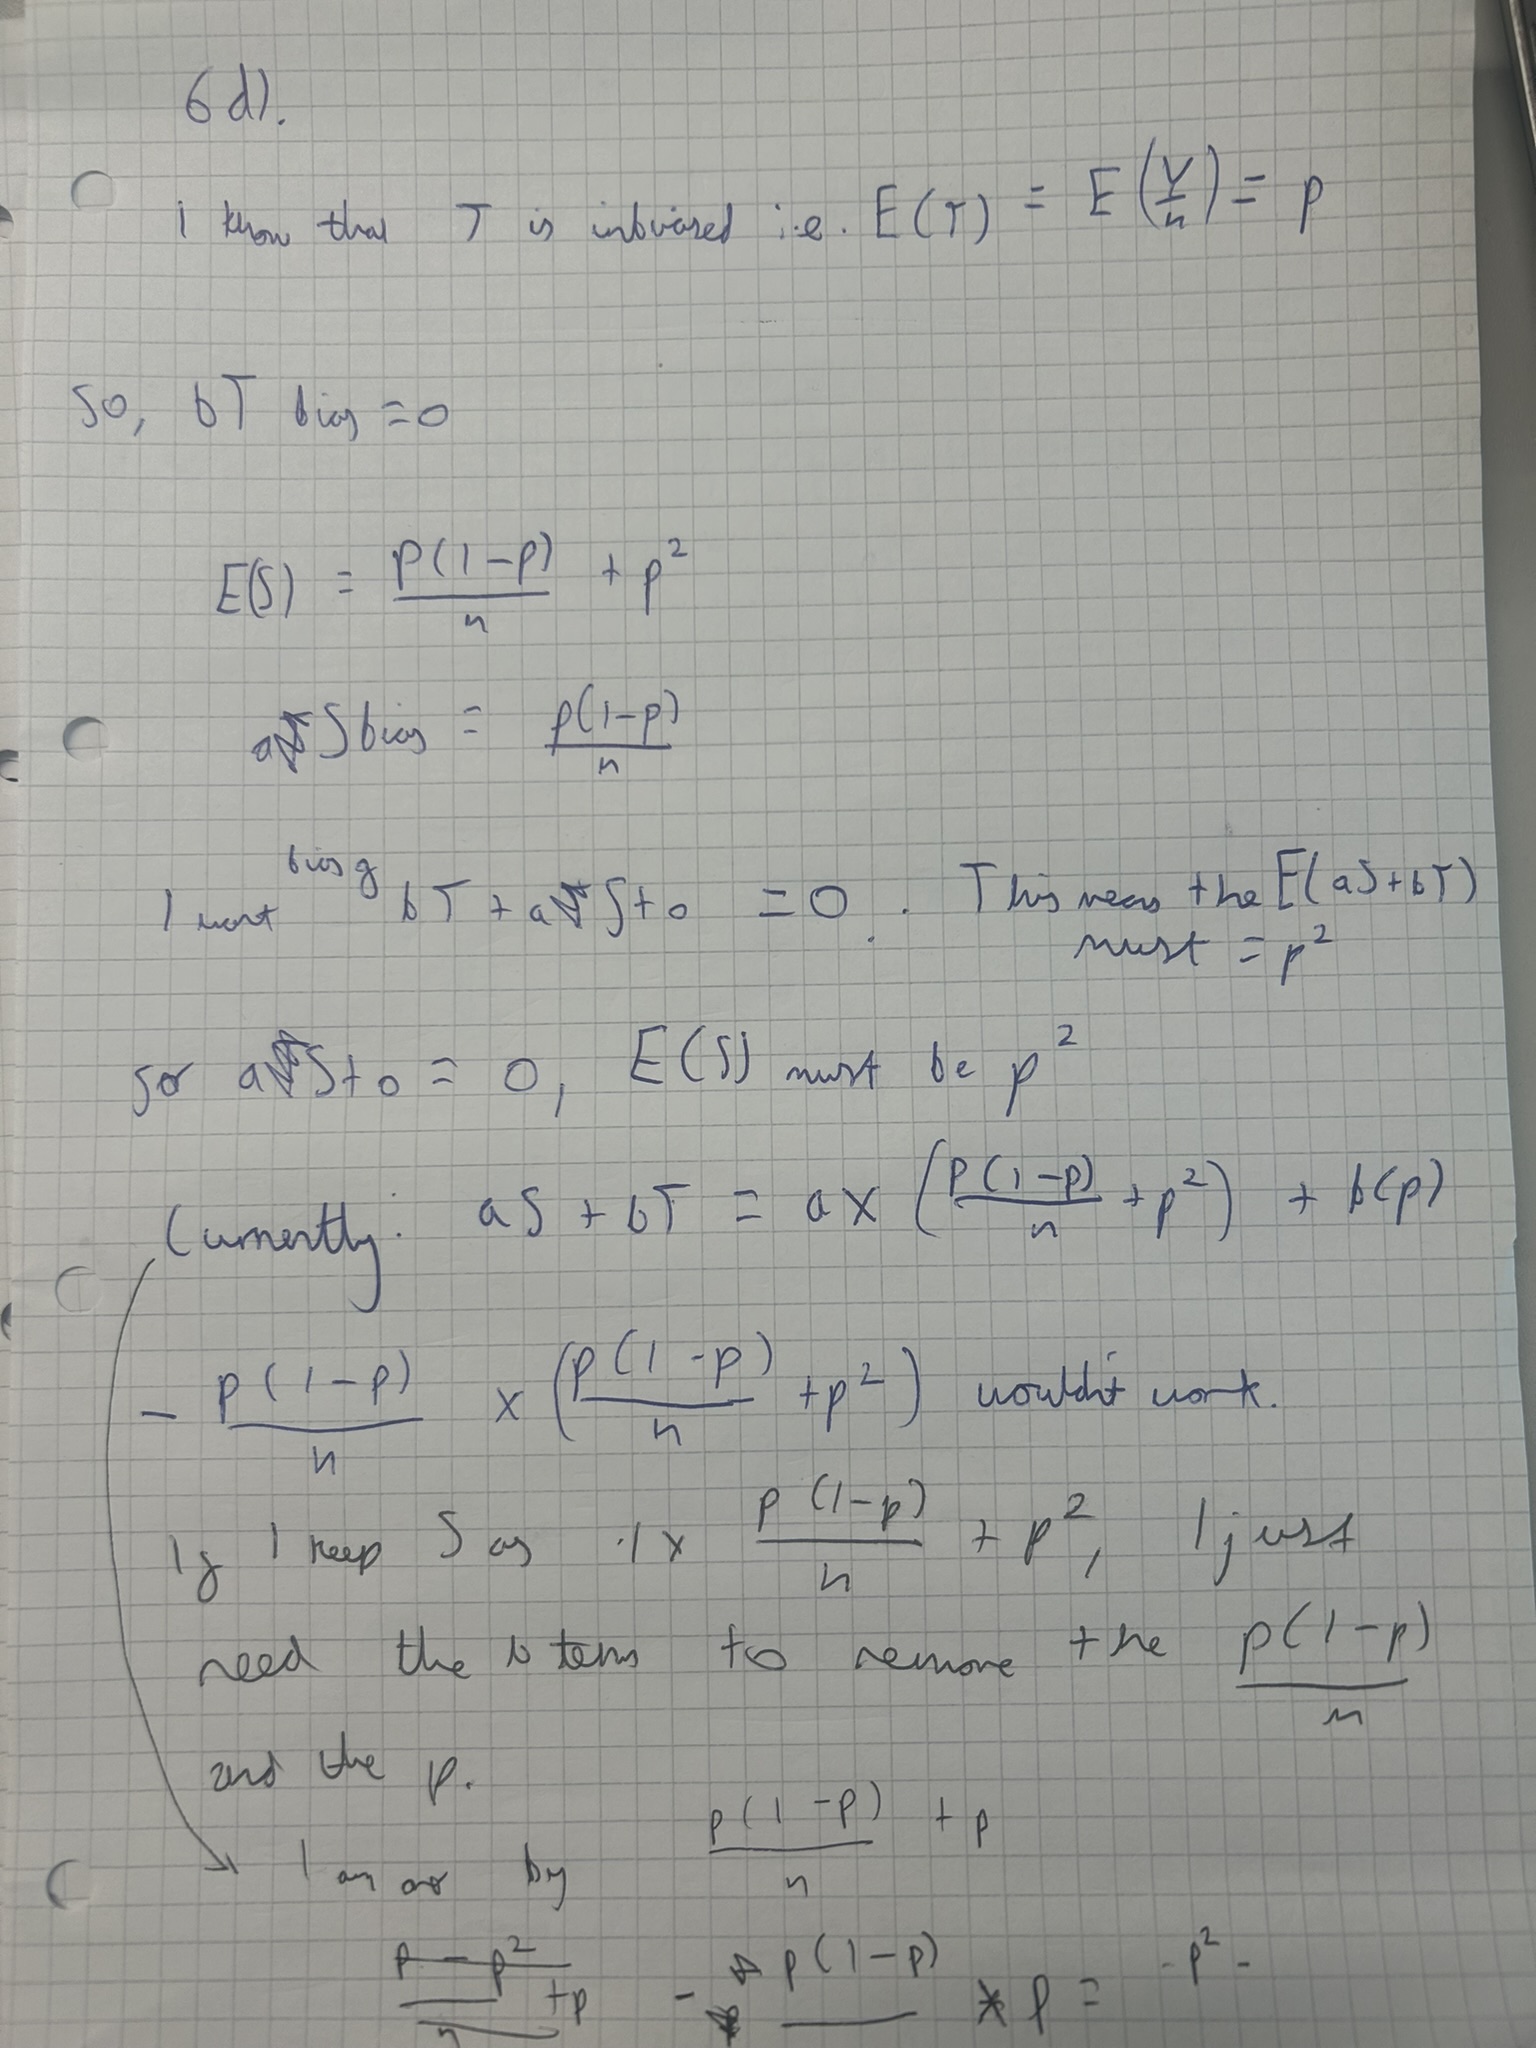 6d).
I know that T is inbiased i.e. E(T) = E(Y/n) = p
So, bT bias = 0
E(S) = p(1-p)/n + p²
a S bias = p(1-p)/n
I want bias of bT + a S to = 0. This means the E(aS+bT)
must = p²
for a S to = 0, E(S) must be p²
Currently: aS + bT = a x (p(1-p)/n + p²) + b(p)
- p(1-p)/n x (p(1-p)/n + p²) wouldn't work.
If I keep S as 1 x p(1-p)/n + p², I just
need the b term to remove the p(1-p)/n
and the p.
I am by p(1-p)/n + p
p - p²/n + p - p(1-p) * p = - p² -